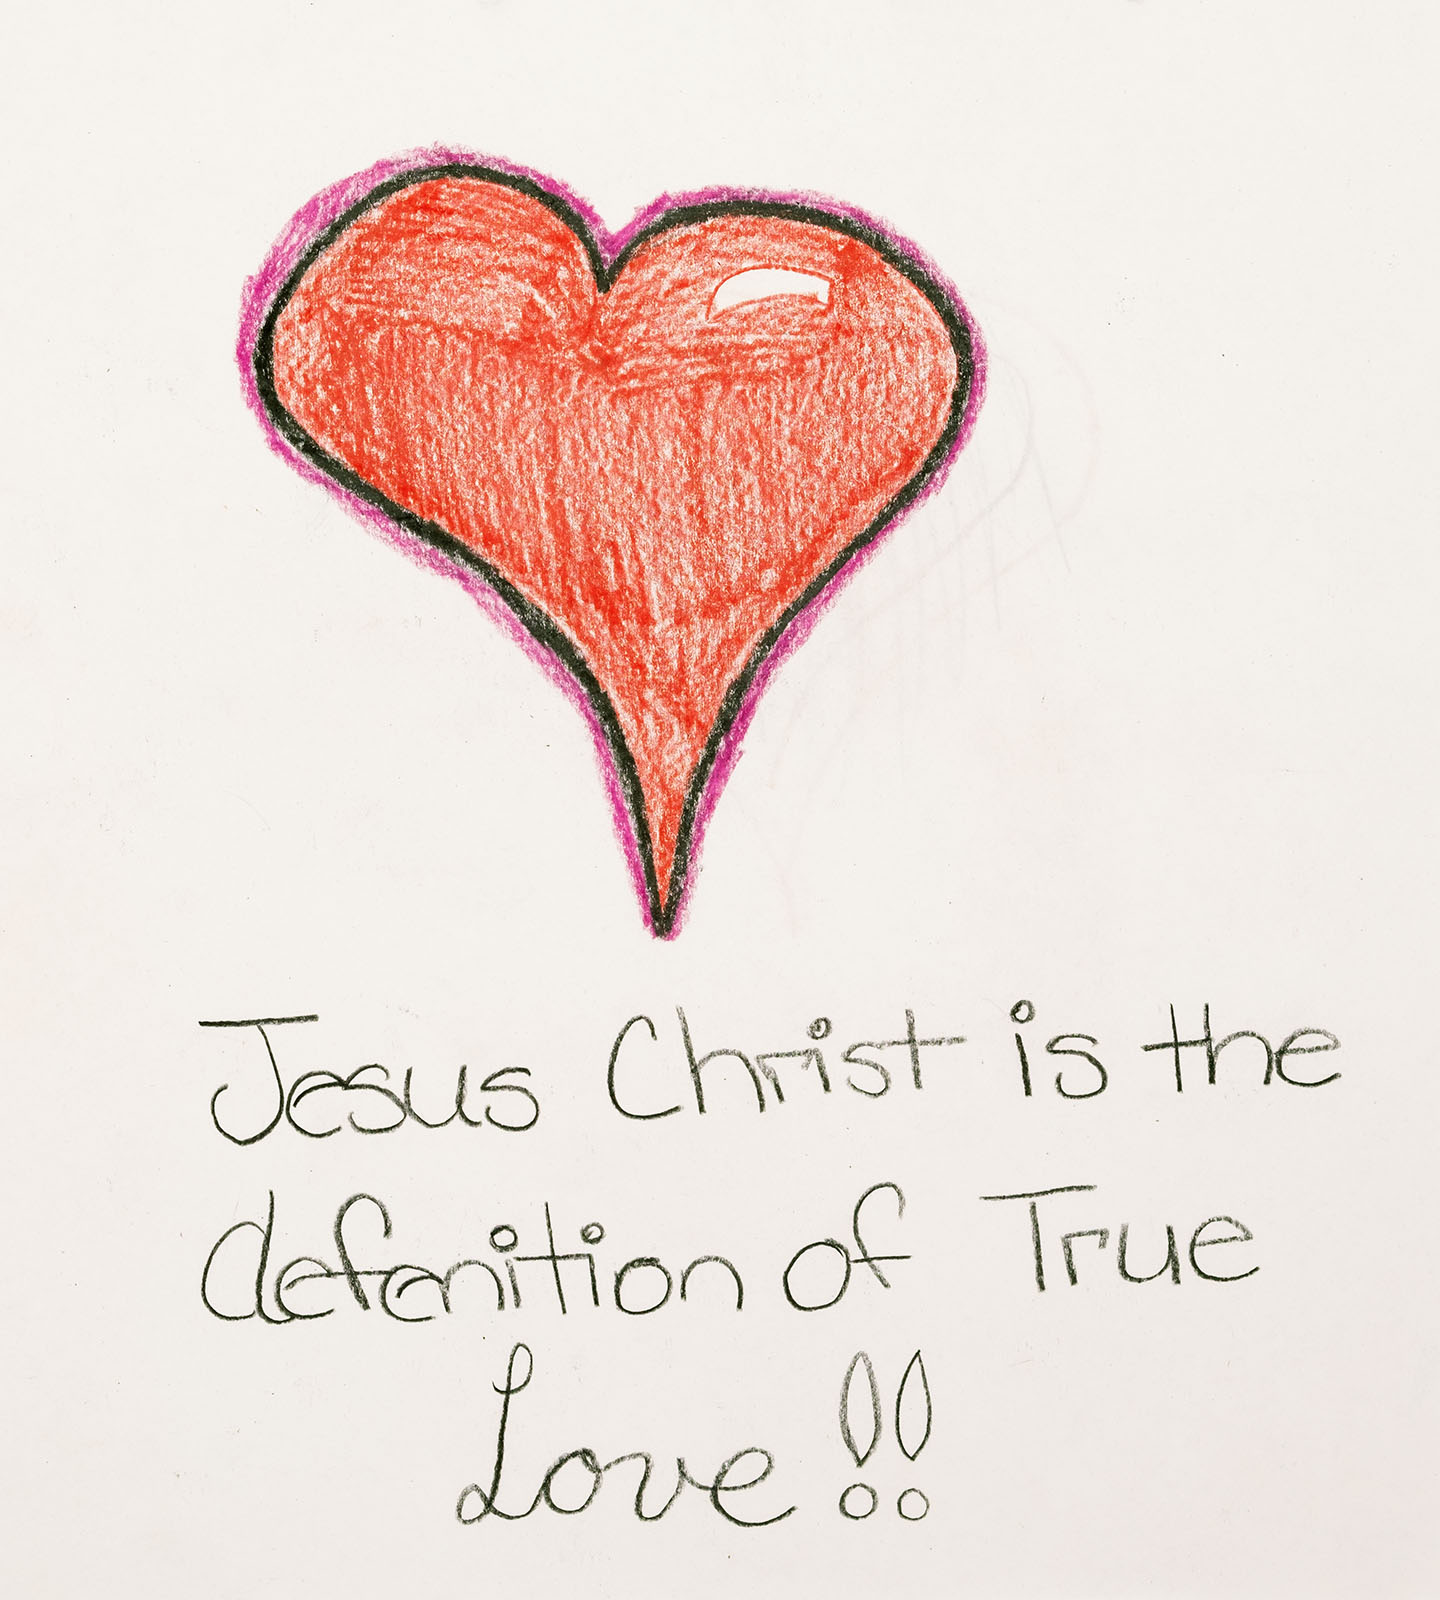 Jesus Christ is the
defenition of True
Love!!